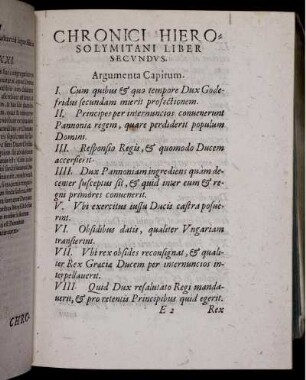 CHRONICI HIERO-
SOLYMITANI LIBER
SECVNDVS.
Argumenta Capitum.
I. Cum quibus & quo tempore Dux Gode-
fridus secundam inierit profectionem.
II. Principes per internuncios conuenerunt
Pannoniæ regem, quare perdiderit populum
Domini.
III. Responsio Regis, & quomodo Ducem
accersierit.
IIII. Dux Pannoniam ingrediens quam de-
center susceptus sit, & quid inter eum & re-
gni primores conuenerit.
V. Vbi exercitus iussu Ducis castra posue-
rint.
VI. Obsidibus datis, qualiter Vngariam
transierint.
VII. Vbi rex obsides reconsignat, & quali-
ter Rex Græciæ Ducem per internuncios in-
terpellauerit.
VIII. Quid Dux resalutato Regi manda-
uerit, & pro retentis Principibus quid egerit.
E 2 Rex
XXI.
CHRO-